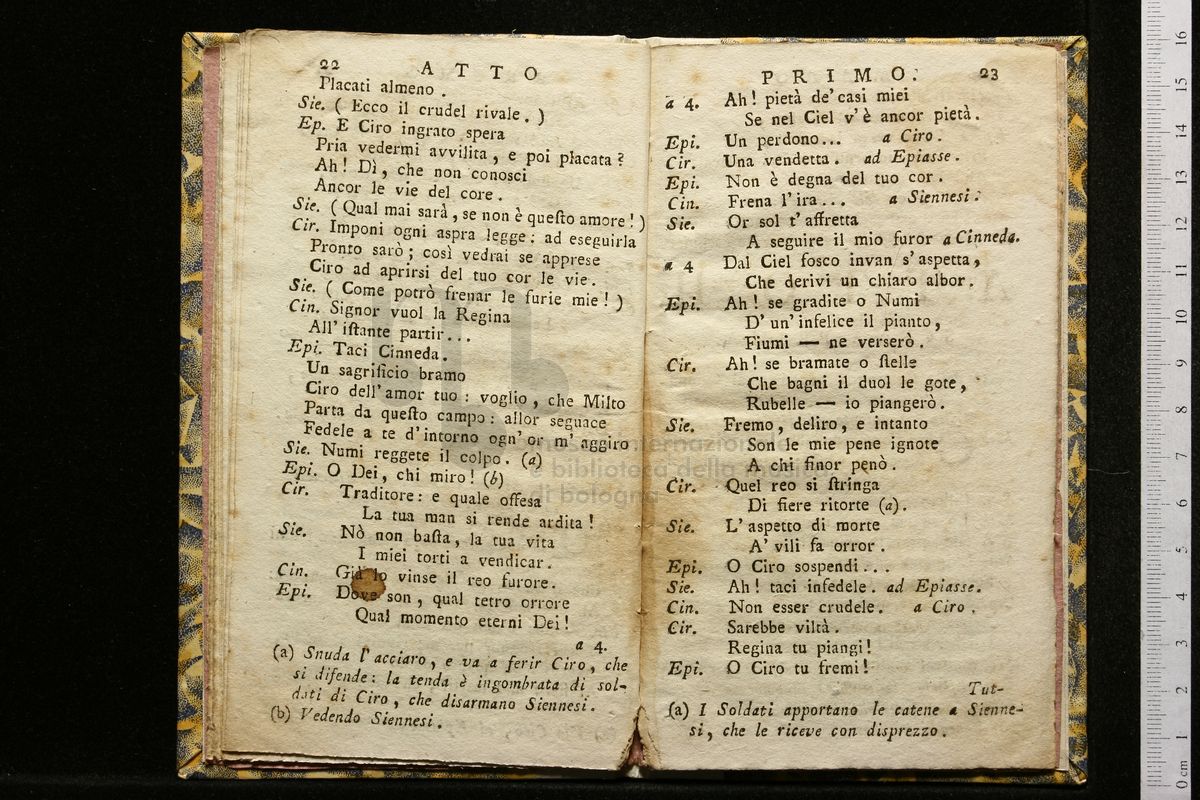 22 ATTO
Placati almeno.
Sie. ( Ecco il crudel rivale. )
Ep. E Ciro ingrato spera
Pria vedermi avvilita, e poi placata?
Ah! Dì, che non conosci
Ancor le vie del core.
Sie. ( Qual mai sarà, se non è queſto amore! )
Cir. Imponi ogni aspra legge: ad eseguirla
Pronto sarò; così vedrai se apprese
Ciro ad aprirsi del tuo cor le vie.
Sie. ( Come potrò frenar le furie mie! )
Cin. Signor vuol la Regina
All' iſtante partir...
Epi. Taci Cinneda.
Un sagrificio bramo
Ciro dell' amor tuo: voglio, che Milto
Parta da queſto campo: allor seguace
Fedele a te d' intorno ogn' or m' aggiro
Sie. Numi reggete il colpo. (a)
Epi. O Dei, chi miro! (b)
Cir. Traditore: e quale offesa
La tua man si rende ardita!
Sie. Nò non baſta, la tua vita
I miei torti a vendicar.
Cin. Già lo vinse il reo furore.
Epi. Dove son, qual tetro orrore
Qual momento eterni Dei!
a 4.
(a) Snuda l' acciaro, e va a ferir Ciro, che
si difende: la tenda è ingombrata di sol-
dati di Ciro, che disarmano Siennesi.
(b) Vedendo Siennesi.
PRIMO. 23
a 4. Ah! pietà de' casi miei
Se nel Ciel v' è ancor pietà.
Epi. Un perdono... a Ciro.
Cir. Una vendetta. ad Epiasse.
Epi. Non è degna del tuo cor.
Cin. Frena l' ira... a Siennesi.
Sie. Or sol t' affretta
A seguire il mio furor a Cinneda.
a 4 Dal Ciel fosco invan s' aspetta,
Che derivi un chiaro albor.
Epi. Ah! se gradite o Numi
D' un' infelice il pianto,
Fiumi — ne verserò.
Cir. Ah! se bramate o ſtelle
Che bagni il duol le gote,
Rubelle — io piangerò.
Sie. Fremo, deliro, e intanto
Son le mie pene ignote
A chi finor penò.
Cir. Quel reo si ſtringa
Di fiere ritorte (a).
Sie. L' aspetto di morte
A' vili fa orror.
Epi. O Ciro sospendi...
Sie. Ah! taci infedele. ad Epiasse.
Cin. Non esser crudele. a Ciro.
Cir. Sarebbe viltà.
Regina tu piangi!
Epi. O Ciro tu fremi!
Tut-
(a) I Soldati apportano le catene a Sienne-
si, che le riceve con disprezzo.
museo internazionale
e biblioteca della musica
di bologna
0 cm 1 2 3 4 5 6 7 8 9 10 11 12 13 14 15 16